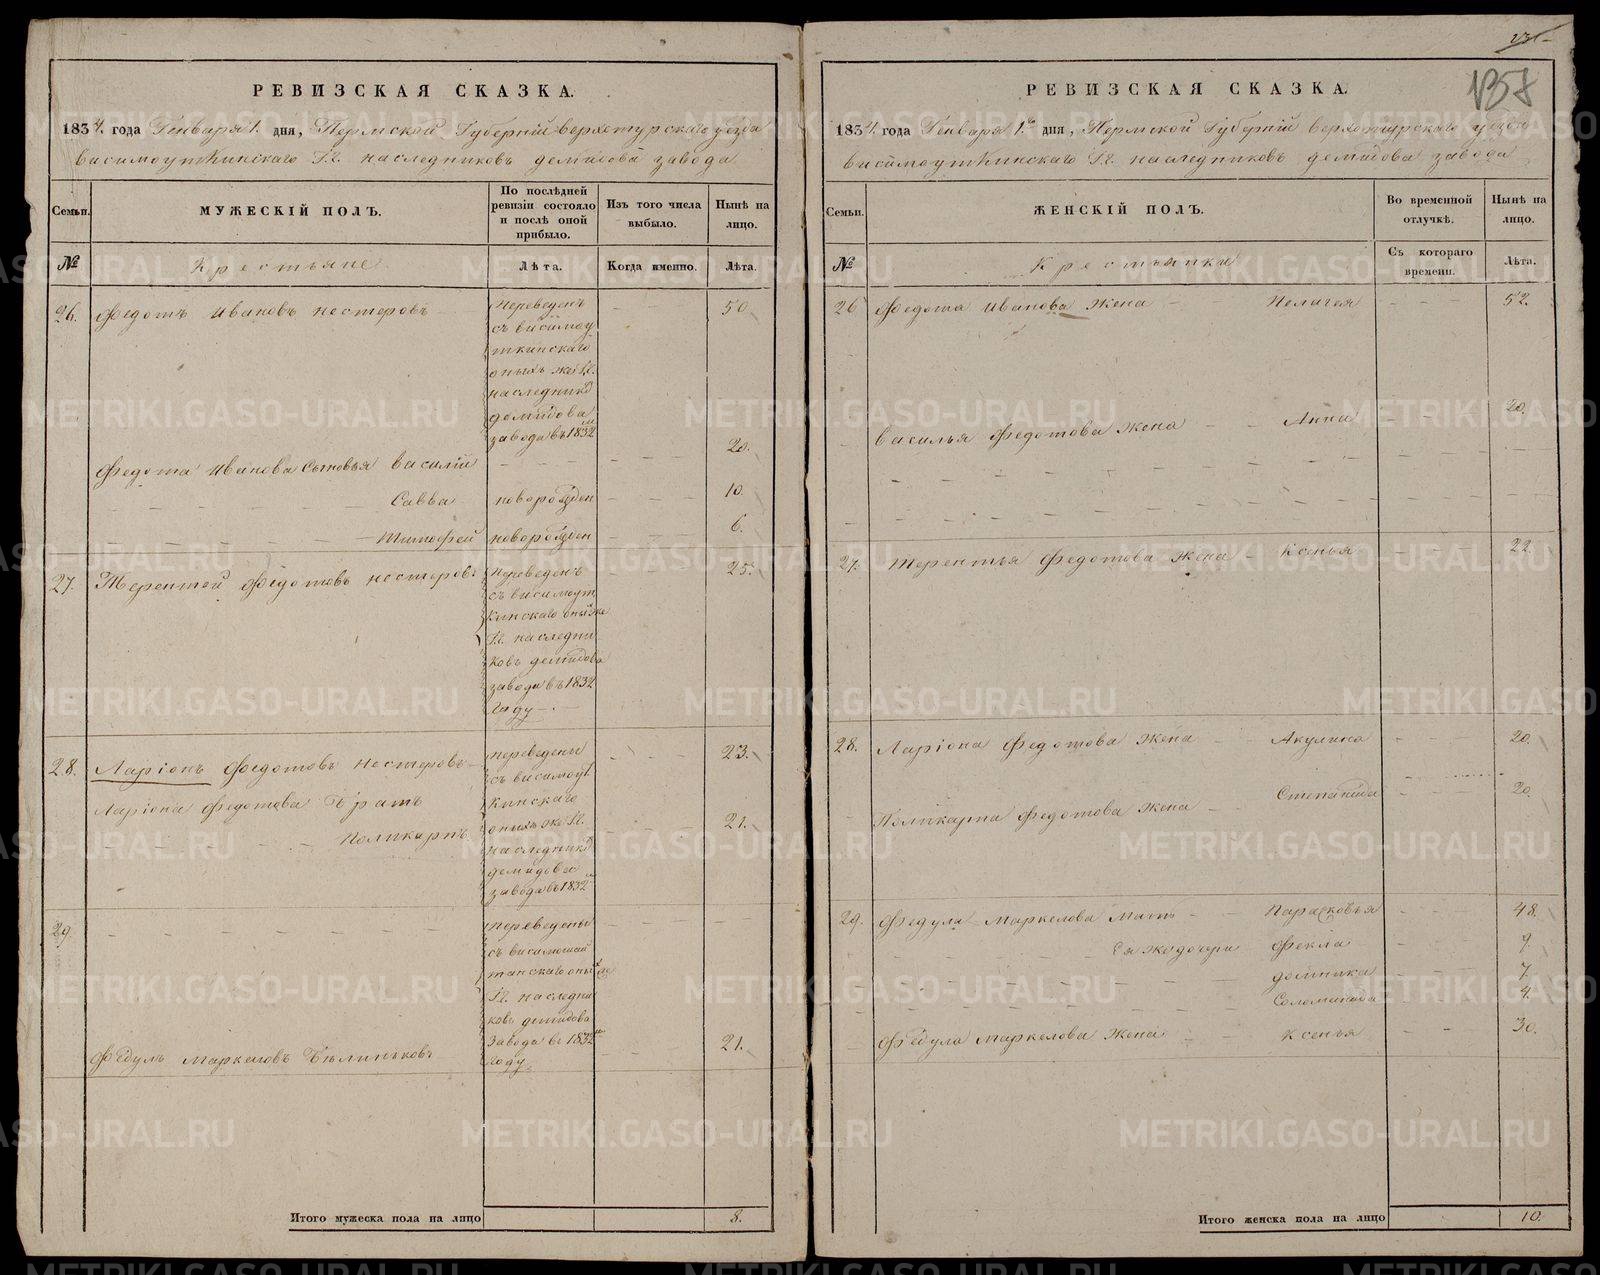 РЕВИЗСКАЯ СКАЗКА.
1834. года Генваря 1. дня, Пермской Губернiи верхотурскаго уезда
висимоуткинскаго Гг. наследниковъ демидова завода
Семьи.
МУЖЕСКIЙ ПОЛЪ.
По послѣдней ревизiи состояло и послѣ оной прибыло.
Изъ того числа выбыло.
Нынѣ на лицо.
№
Крестьяне
Лѣта.
Когда именно.
Лѣта.
26. Федотъ Ивановъ нестеровъ
переведенъ
съ висимоу
ткинскаго
оныхъ же Гг.
наследнико
демидова
завода въ 1832
50
Федота Иванова Сыновья василiй
20.
Савва новорожден 10.
Тимофей новорожден 6.
27. Терентей Федотовъ нестеровъ
переведенъ
съ висимоут
кинскаго оныхже
Гг. наследни
ковъ демидова
завода въ 1832
Году
25.
28. Ларiонъ Федотовъ нестеровъ
Ларiона Федотова Братъ
Поликарпъ
переведены
съ висимоут
кинскаго
оныхъ же Гг.
наследнико
демидова
завода въ 1832
23.
21.
29.
переведены
съ висимошай
танскаго оныхже
Гг. наследни
ковъ демидова
завода въ 1832
Году
Федулъ маркеловъ Белиньковъ
21.
Итого мужеска пола на лицо 8.
РЕВИЗСКАЯ СКАЗКА.
1834. года Генваря 1го дня, Пермской Губернiи верхотурскаго уезда
висимоуткинскаго Гг. наследниковъ демидова завода
Семьи.
ЖЕНСКIЙ ПОЛЪ.
Во временной отлучкѣ.
Нынѣ на лицо.
№
Крестьянки
Съ котораго времени.
Лѣта.
26 Федота Иванова жена Пелагея 52.
василья Федотова жена Анна 20.
27. Терентья Федотова жена Ксенья 22.
28. Ларiона Федотова жена Акулина 20.
Поликарпа Федотова жена Степанида 20.
29. Федула Маркелова мать Парасковья 48.
Ея же дочери Фекла 9.
домника 7.
Соломанида 4.
Федула маркелова жена Ксенья 30.
Итого женска пола на лицо 10.
METRIKI.GASO-URAL.RU